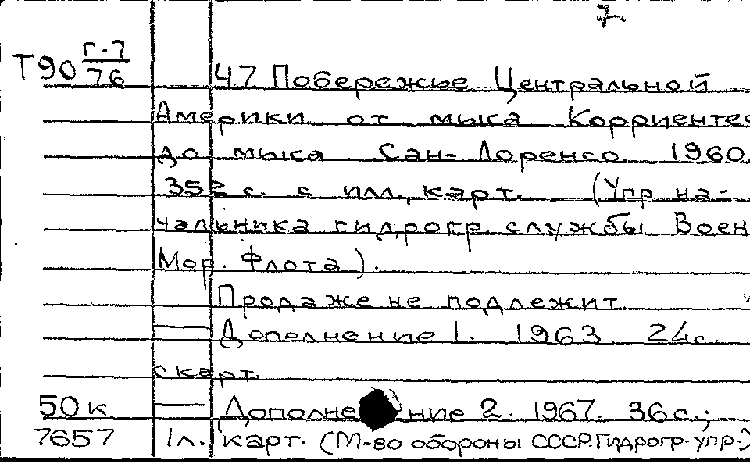 7.
Т90 Г-7/76 47 Побережье Центральной
Америки от мыса Корриентес
до мыса Сан-Лоренсо. 1960.
352 с. с илл., карт. (Упр. на-
чальника гидрогр. службы Воен.
Мор. Флота).
Продаже не подлежит.
— Дополнение 1. 1963. 24с.
с карт.
50к — Дополнение 2. 1967. 36с.;
7657 1л. карт. (М-во обороны СССР. Гидрогр. упр.)